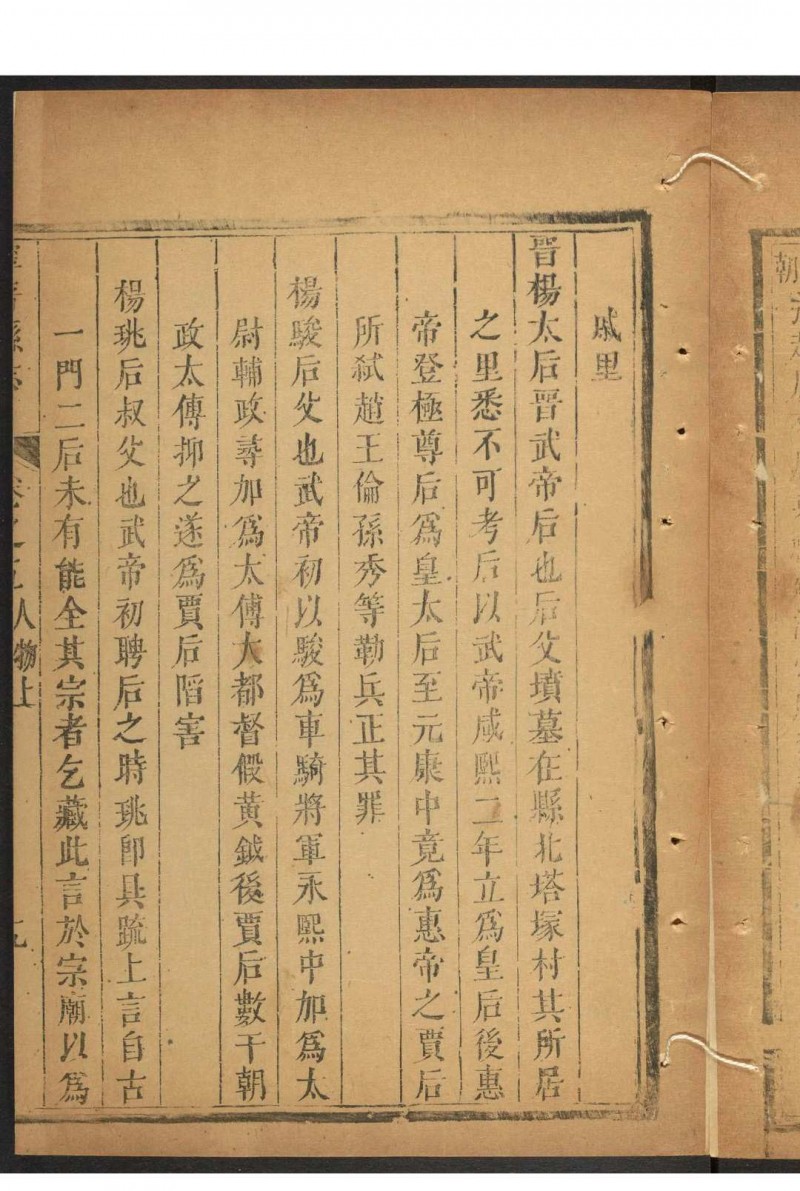 戚里
晋楊太后晋武帝后也后父墳墓在縣北塔塚村其所居
之里悉不可考后以武帝咸熙二年立爲皇后後惠
帝登極尊后爲皇太后至元康中竟爲惠帝之賈后
所弑趙王倫孫秀等勒兵正其罪
楊駿后父也武帝初以駿爲車騎將軍永熙中加爲太
尉輔政尋加爲太傅大都督假黃鉞後賈后數干朝
政太傅抑之遂爲賈后陷害
楊珧后叔父也武帝初聘后之時珧卽具疏上言自古
一門二后未有能全其宗者乞藏此言於宗廟以爲
卷之五人物上